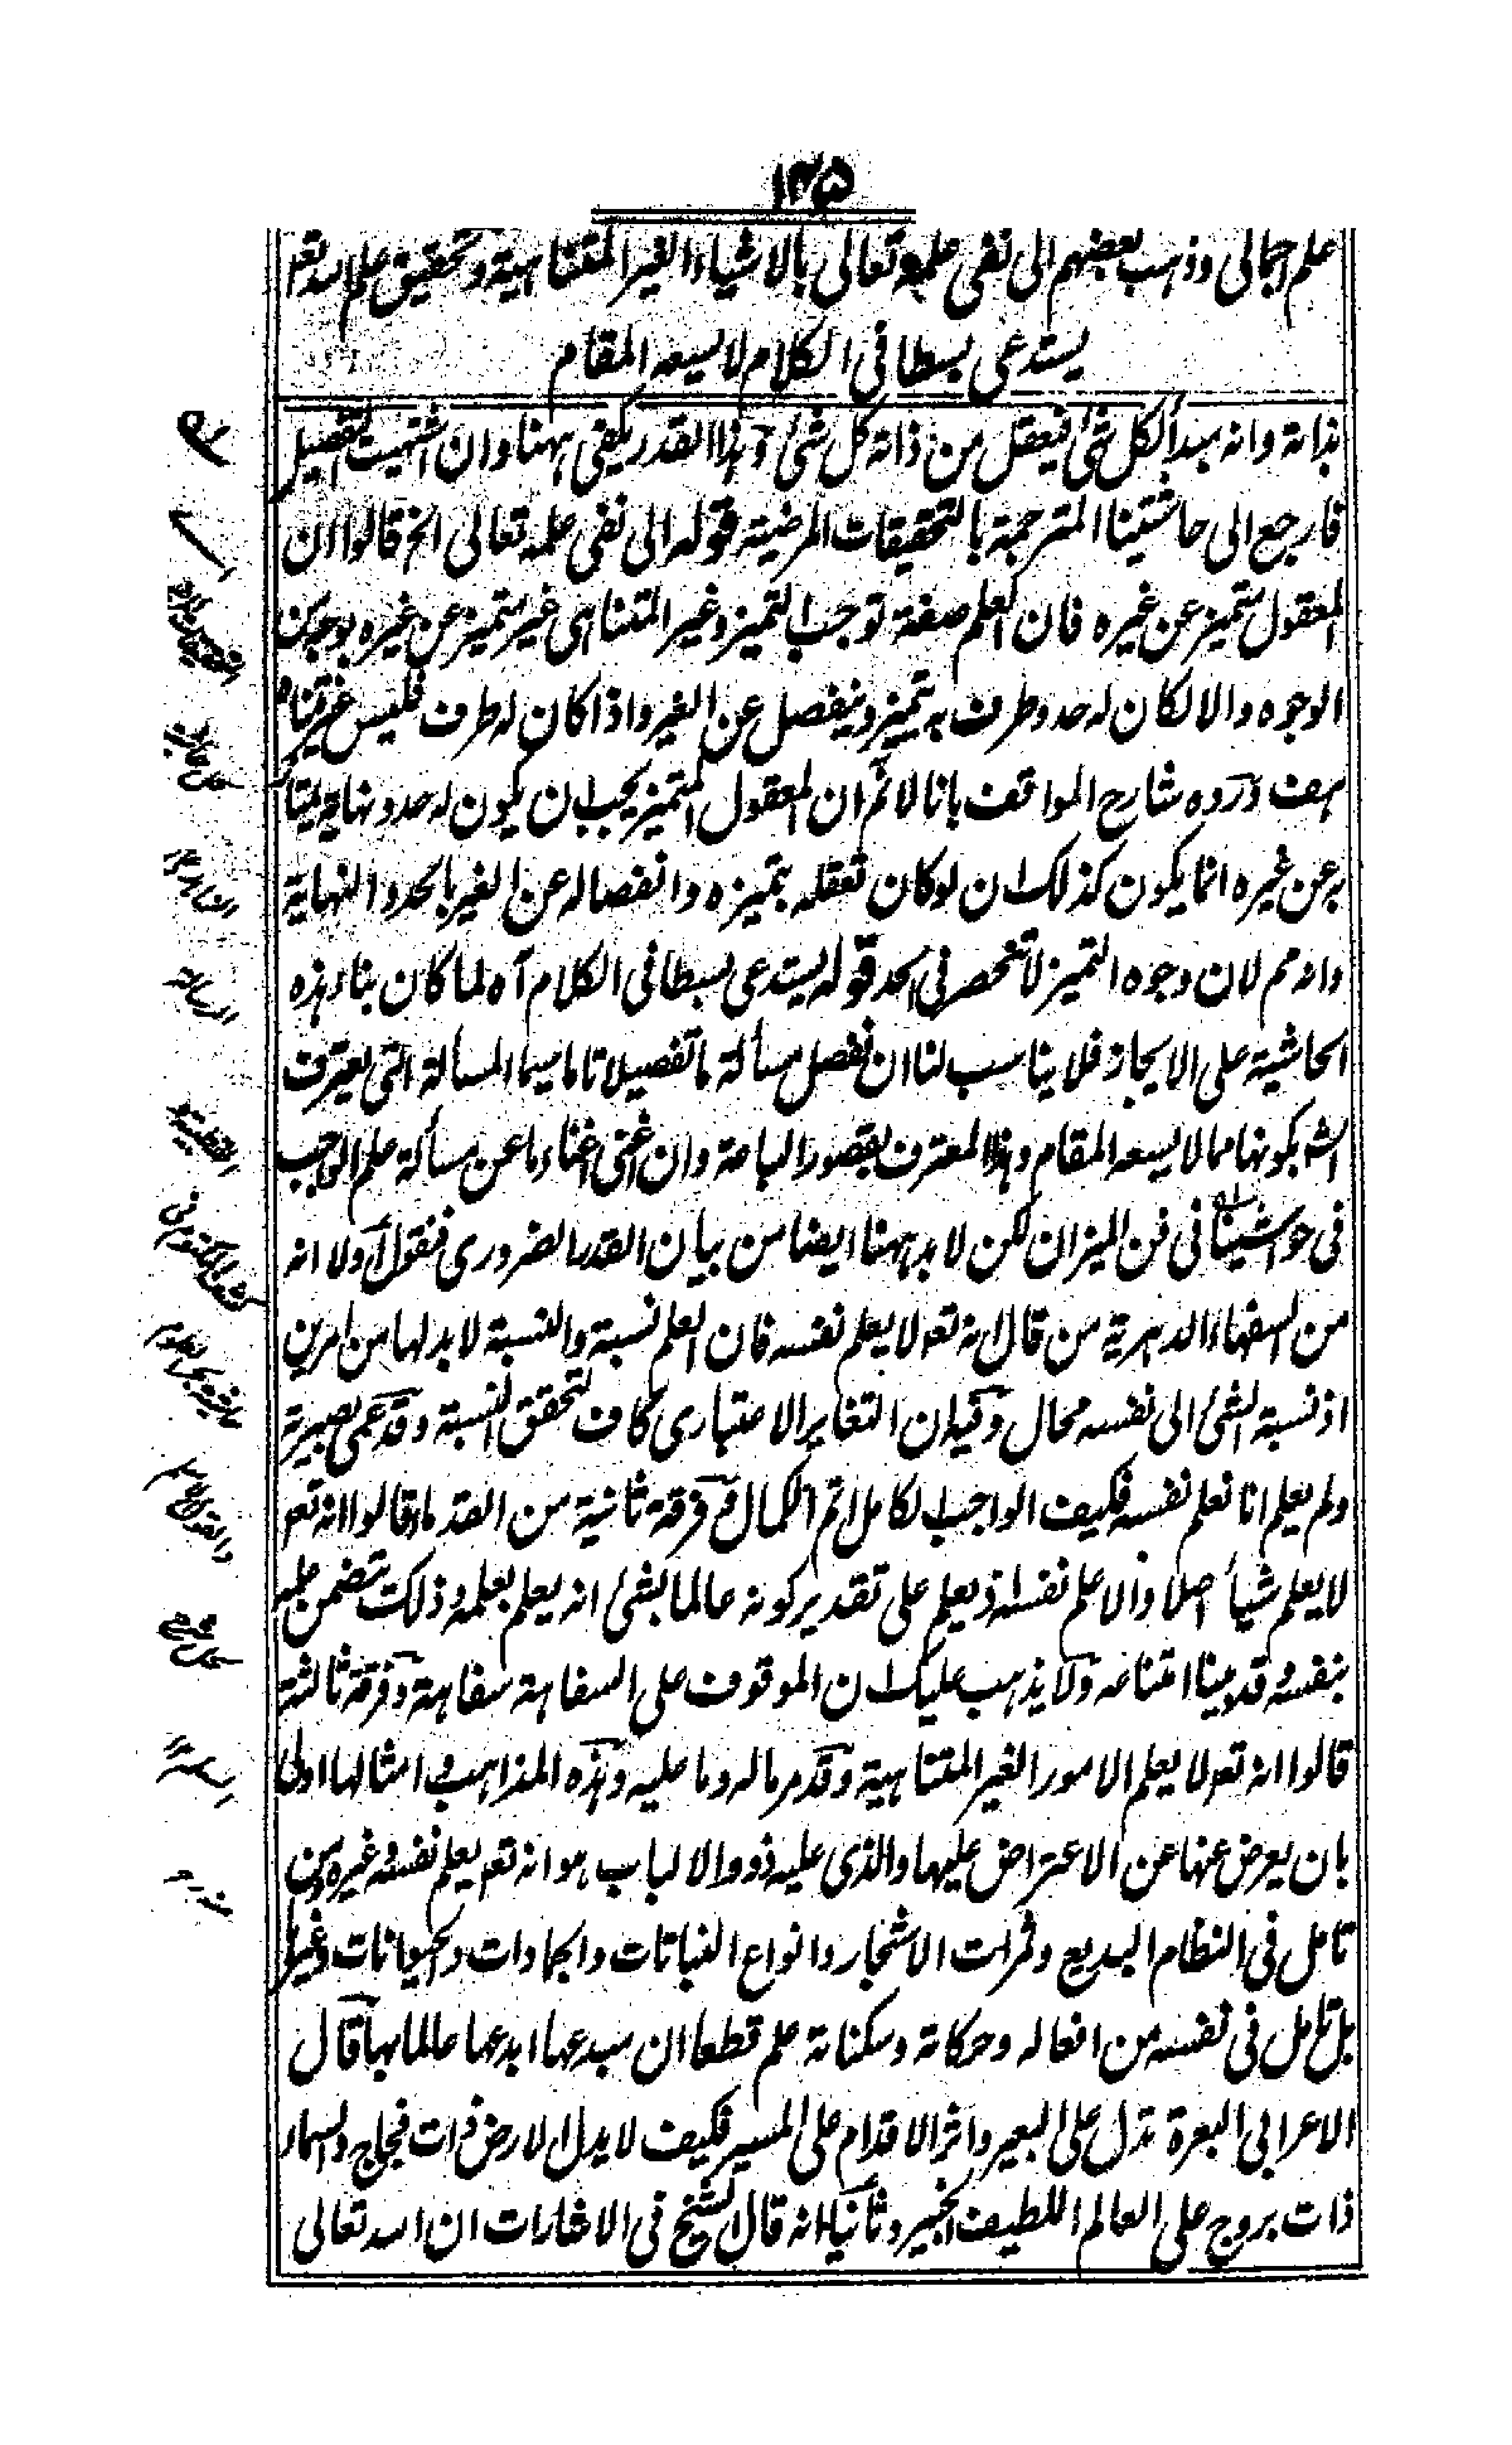 ١٢٥
علم اجمالی وذهب بعضهم الی نفی علمه تعالی بالاشیاء الغیر المتناهیة وتحقیق علم الله تعہ
یستدعی بسطا فی الکلام لا یسعه المقام
بذاته وانه مبدأ لکل شئ فیعقل من ذاته کل شئ وهذا القدر یکفی ههنا وان اشتهیت التفصیل
فارجع الی حاشیتنا المترجمة بالتحقیقات المرضیة قوله الی نفی علمه تعالی الخ قالوا ان
المعقول متمیز عن غیره فان العلم صفة توجب التمیز وغیر المتناهی غیر متمیز عن غیره بوجه من
الوجوه والا لکان له حد وطرف به یتمیز وینفصل عن الغیر واذا کان له طرف فلیس غیر متناه
هف ورده شارح المواقف بانا لا نم ان المعقول المتمیز یجب ان یکون له حد ونهایة یمتاز
به عن غیره انما یکون کذلک ان لو کان تعقله بتمیزه وانفصاله عن الغیر بالحد والنهایة
وانه مم لان وجوه التمیز لا تنحصر فی الحد قوله یستدعی بسطا فی الکلام آه لما کان بناء هذه
الحاشیة علی الایجاز فلا یناسب لنا ان نفصل مسألة ما تفصیلا تاما سیما المسألة التی یعترف
الش بکونها مما لا یسعه المقام وهذا المعترف بقصور الباعة وان اغنی اغناء ما عن مسألة علم الواجب
فی حواشینا فی فن المیزان لکن لا بد ههنا ایضا من بیان القدر الضروری فنقول اولا انه
من السفهاء الدهریة من قال انه تعہ لا یعلم نفسه فان العلم نسبة والنسبة لا بد لها من امرین
اذ نسبة الشئ الی نفسه محال وفیه ان التغایر الاعتباری کاف لتحقق النسبة وقد عمی بصیرته
ولم یعلم انا نعلم نفسه فکیف الواجب الکامل اتم الکمال وفرقة ثانیة من القدماء قالوا انه تعہ
لا یعلم شیأ اصلا والا علم نفسه اذ یعلم علی تقدیر کونه عالما بشئ انه یعلم بعلمه وذلک یتضمن علمه
بنفسه وقد بینا امتناعه ولا یذهب علیک ان الموقوف علی السفاهة سفاهة وفرقة ثالثة
قالوا انه تعہ لا یعلم الامور الغیر المتناهیة وقد مر ما له وما علیه وهذه المذاهب وامثالها اولی
بان یعرض عنها عن الاعتراض علیها والذی علیه ذووا الالباب هو انه تعہ یعلم نفسه وغیره ومن
تامل فی النظام البدیع وثمرات الاشجار وانواع النباتات والجمادات والحیوانات وغیرها
بل تامل فی نفسه من افعاله وحرکاته وسکناته علم قطعا ان مبدعها ابدعها عالما بها قال
الاعرابی البعرة تدل علی البعیر واثر الاقدام علی المسیر فکیف لا یدل الارض ذات فجاج والسماء
ذات بروج علی العالم اللطیف الخبیر وثانیا انه قال الشیخ فی الاشارات ان الله تعالی